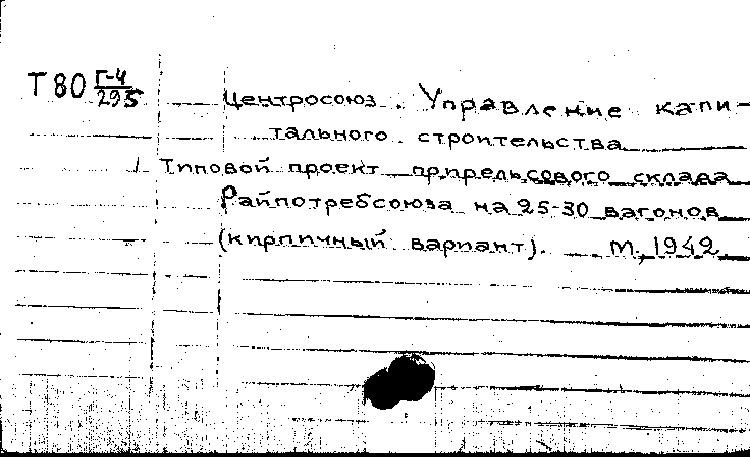 Т80 Г-4/295
Центросоюз. Управление капи-
тального строительства
Типовой проект прирельсового склада
Райпотребсоюза на 25-30 вагонов
(кирпичный вариант). М., 1942